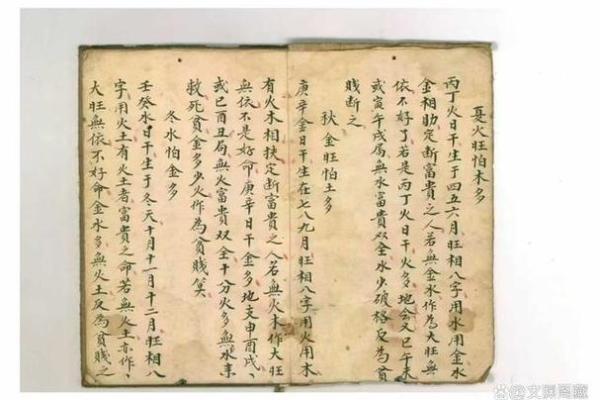 夏火旺怕木多
丙丁火日干生于四五六月旺相八字用水用金水
金相助定断富貴之人若無金水作為大旺無
依不好了若是丙丁火日干火多地会又巳午未
或寅午戌局無水富貴双全水少破格反為貧
賤断之
秋金旺怕土多
庚辛金日干生在七八九月旺相八字用火用木
有火木相扶定断富貴之人若無火木作大旺
無依不是好命庚辛日干金多地支申酉戌、
或巳酉丑局無火富貴双全十分火多無水来
救死貧金多少火作為貧賤矣
冬水怕金多
壬癸水日干生于冬天十月十一月十二月旺相八
字用火土有火土者富貴之命若無火土亦作、
大旺無依不好命金水多無火土反為貧賤之
文渊阁藏